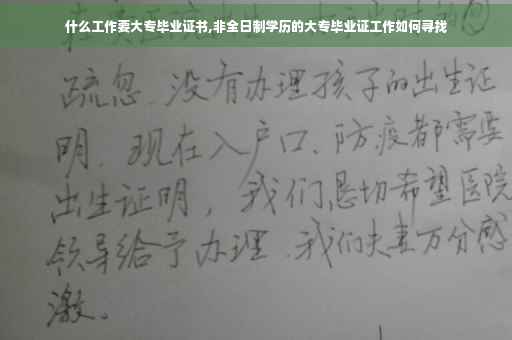 什么工作要大专毕业证书,非全日制学历的大专毕业证工作如何寻找
疏忽、没有办理孩子的出生证
明、现在入户口、防疫都需要
出生证明，我们恳切希望医院
领导给予办理、我们夫妻万分感
激。